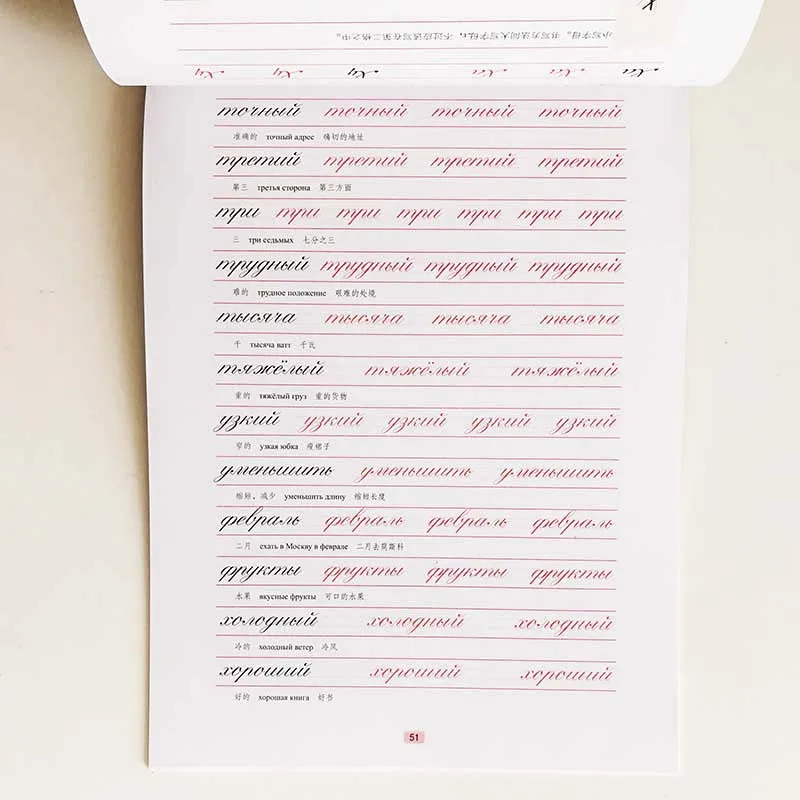 小写字母。书写方法同大写字母,不过应该写在第二格之中。
точный точный точный точный
准确的 точный адрес 确切的地址
третий третий третий третий
第三 третья сторона 第三方面
три три три три три три три
三 три седьмых 七分之三
трудный трудный трудный трудный
难的 трудное положение 艰难的处境
тысяча тысяча тысяча тысяча
千 тысяча ватт 千瓦
тяжёлый тяжёлый тяжёлый
重的 тяжёлый груз 重的货物
узкий узкий узкий узкий узкий
窄的 узкая юбка 瘦裙子
уменьшить уменьшить уменьшить
缩短,减少 уменьшить длину 缩短长度
февраль февраль февраль февраль
二月 ехать в Москву в феврале 二月去莫斯科
фрукты фрукты фрукты фрукты
水果 вкусные фрукты 可口的水果
холодный холодный холодный
冷的 холодный ветер 冷风
хороший хороший хороший
好的 хорошая книга 好书
51